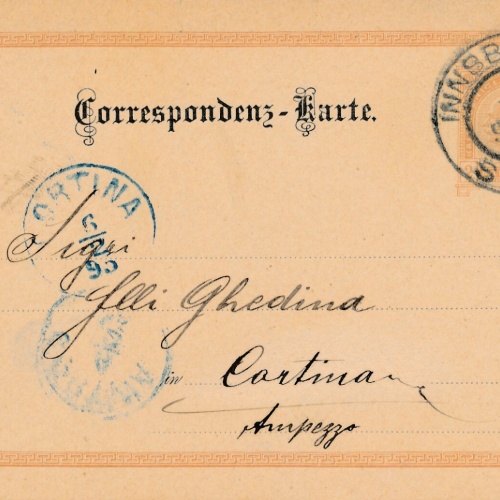 Correspondenz-Karte.
INNSB
ORTINA
6/2
95
Sigri
flli Ghedina
in Cortina
Ampezzo